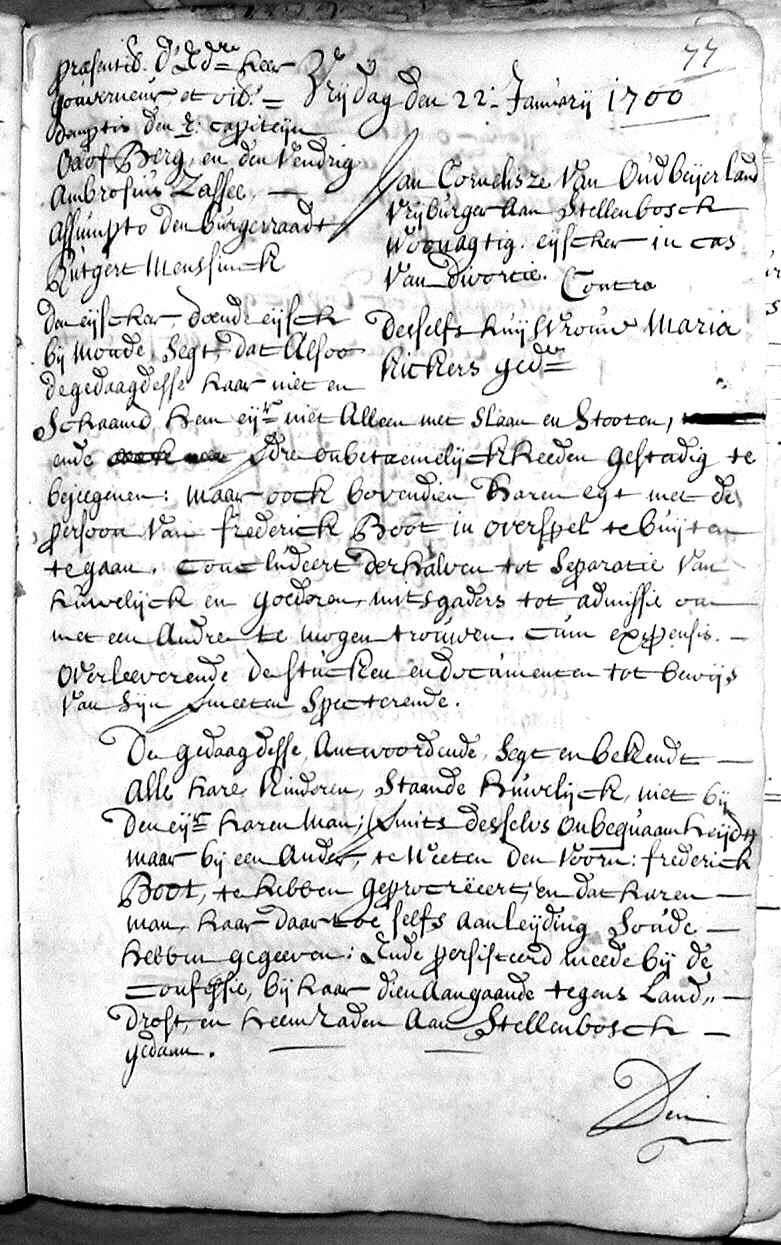 77
Vrijdag den 22: Janùarij 1700
præsentib. d'Ed.re Heer
Gouverneur, et oib.s =
demptis den E: Capiteijn
Oaof Berg, en den Vendrig
Ambrosius Zassee. —
Assumpto den burgerraadt
Rutgert Menssinck
Jan Cornelisze Van Oudbeijerland
Vrijburger Aan Stellenbosch
Woonagtig. eijscher in cas
Van divortie. Contra
desselfs huijsvrouw Maria
Kickers ged.e
den eijscher, doende eijsch
bij monde, segt, dat Alsoo
de gedaagdesse haar niet en
Schaamd, hem eij.r niet Alleen met slaan en Stooten,
ende Ad.re onbetaemelijckheeden gestadig te
bejeegenen: maar oock bovendien haren egt met de
persoon Van frederick Boot in overspel te buijten
te gaan. Concludeert derhalven tot Separatie Van
huwelijck en goederen, mitsgaders tot admissie om
met een Andre te mogen trouwen. Cum expensis. —
Overleeverende de stucken en documenten tot bewijs
Van Sijn meeten Specterende.
De gedaagdesse, Antwoordende, Segt en bekendt —
Alle hare Kinderen, Staande huwelijck, niet bij
den eij.r haren man, mits desselvs onbequaamheijdt,
maar bij een Ander, te weeten den voorn: frederick
Boot, te hebben geprocreëert, en dat haren —
man, haar daar toe selfs aanleijding Soude —
hebben gegeeven: Ende persisteerd meede bij de
Confessie, bij haar dien Aangaande tegens Land,, —
drost, en heemraden Aan Stellenbosch —
gedaan. —
Den